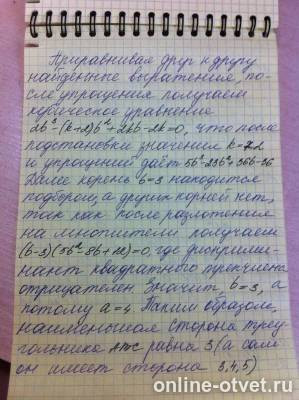 Приравнивая друг к другу
найденные выражения, по-
сле упрощения получаем
кубическое уравнение
2b³-(k+2)b²+2kb-2k=0, что после
подстановки значения
и упрощений даёт 5b³-23b²+36b-36
Далее корень b=3 находится
подбором, а других корней нет,
так как после разложения
на множители получаем
(b-3)(5b²-8b+12)=0, где дискрими-
нант квадратного трехчлена
отрицателен. Значит, b=3, а
потому a=4. Таким образом,
наименьшая сторона треу-
гольника равна 3 (а сам
он имеет сторона 3,4,5)
online-otvet.ru